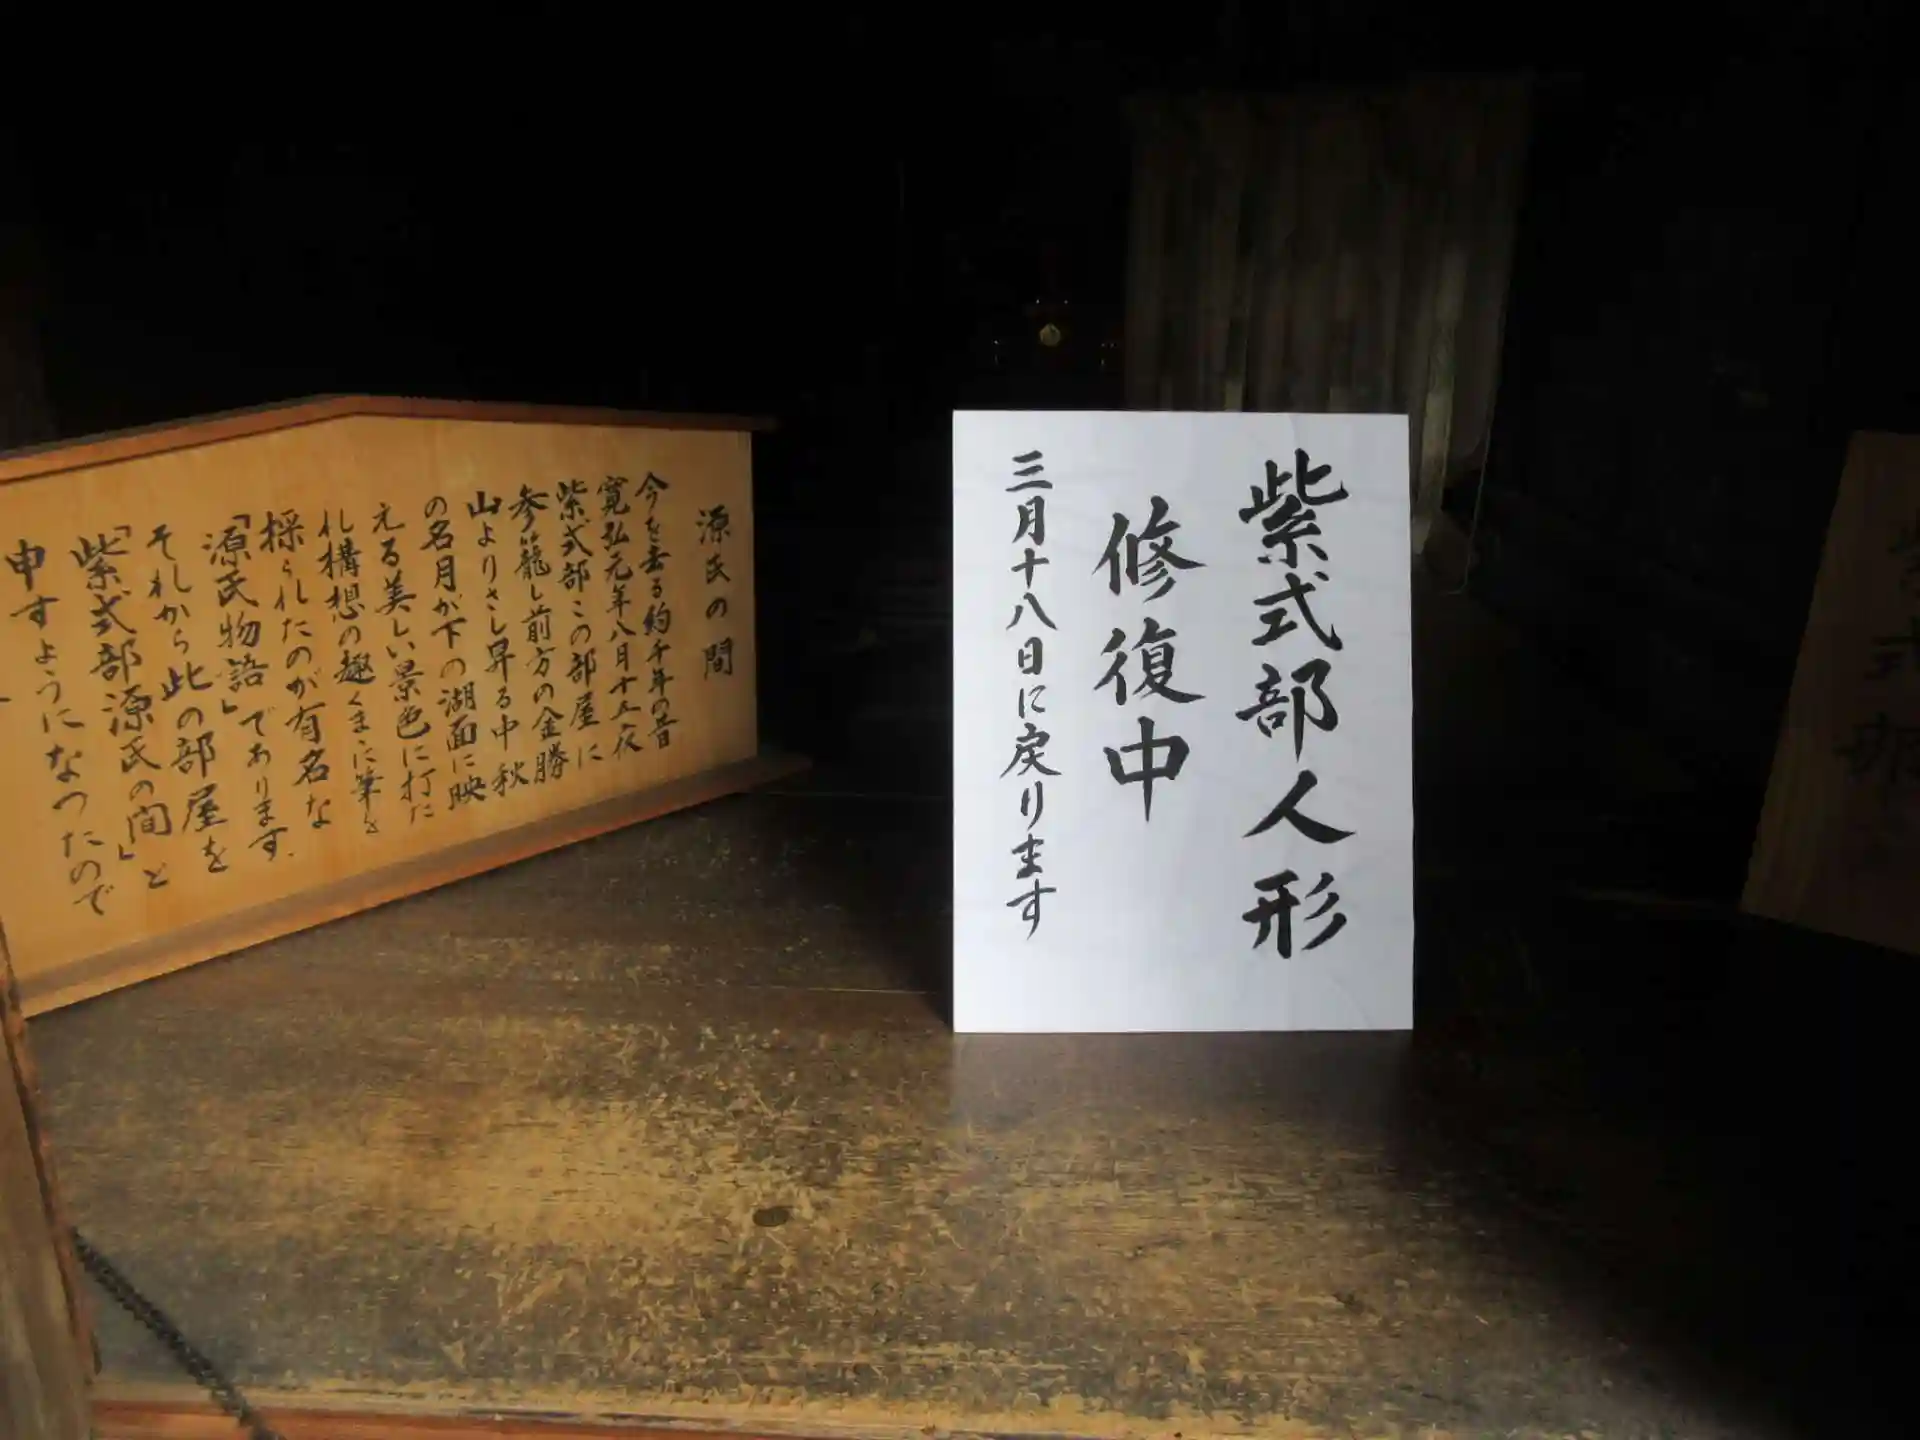 紫式部人形
修復中
三月十八日に戻ります
源氏の間
今を去る約千年の昔
寛弘元年八月十五夜
紫式部この部屋に
参籠し前方の金勝
山よりさし昇る中秋
の名月が下の湖面に映
える美しい景色に打た
れ構想の趣くまに筆を
採られたのが有名な
「源氏物語」であります.
それから此の部屋を
「紫式部源氏の間」と
申すようになつたので